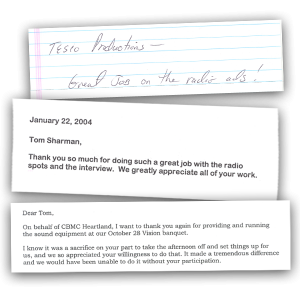 Tesio Productions —
Great Job on the radio ads!
January 22, 2004
Tom Sharman,
Thank you so much for doing such a great job with the radio
spots and the interview.  We greatly appreciate all of your work.
Dear Tom,
On behalf of CBMC Heartland, I want to thank you again for providing and running
the sound equipment at our October 28 Vision banquet.
I know it was a sacrifice on your part to take the afternoon off and set things up for
us, and we so appreciated your willingness to do that. It made a tremendous difference
and we would have been unable to do it without your participation.